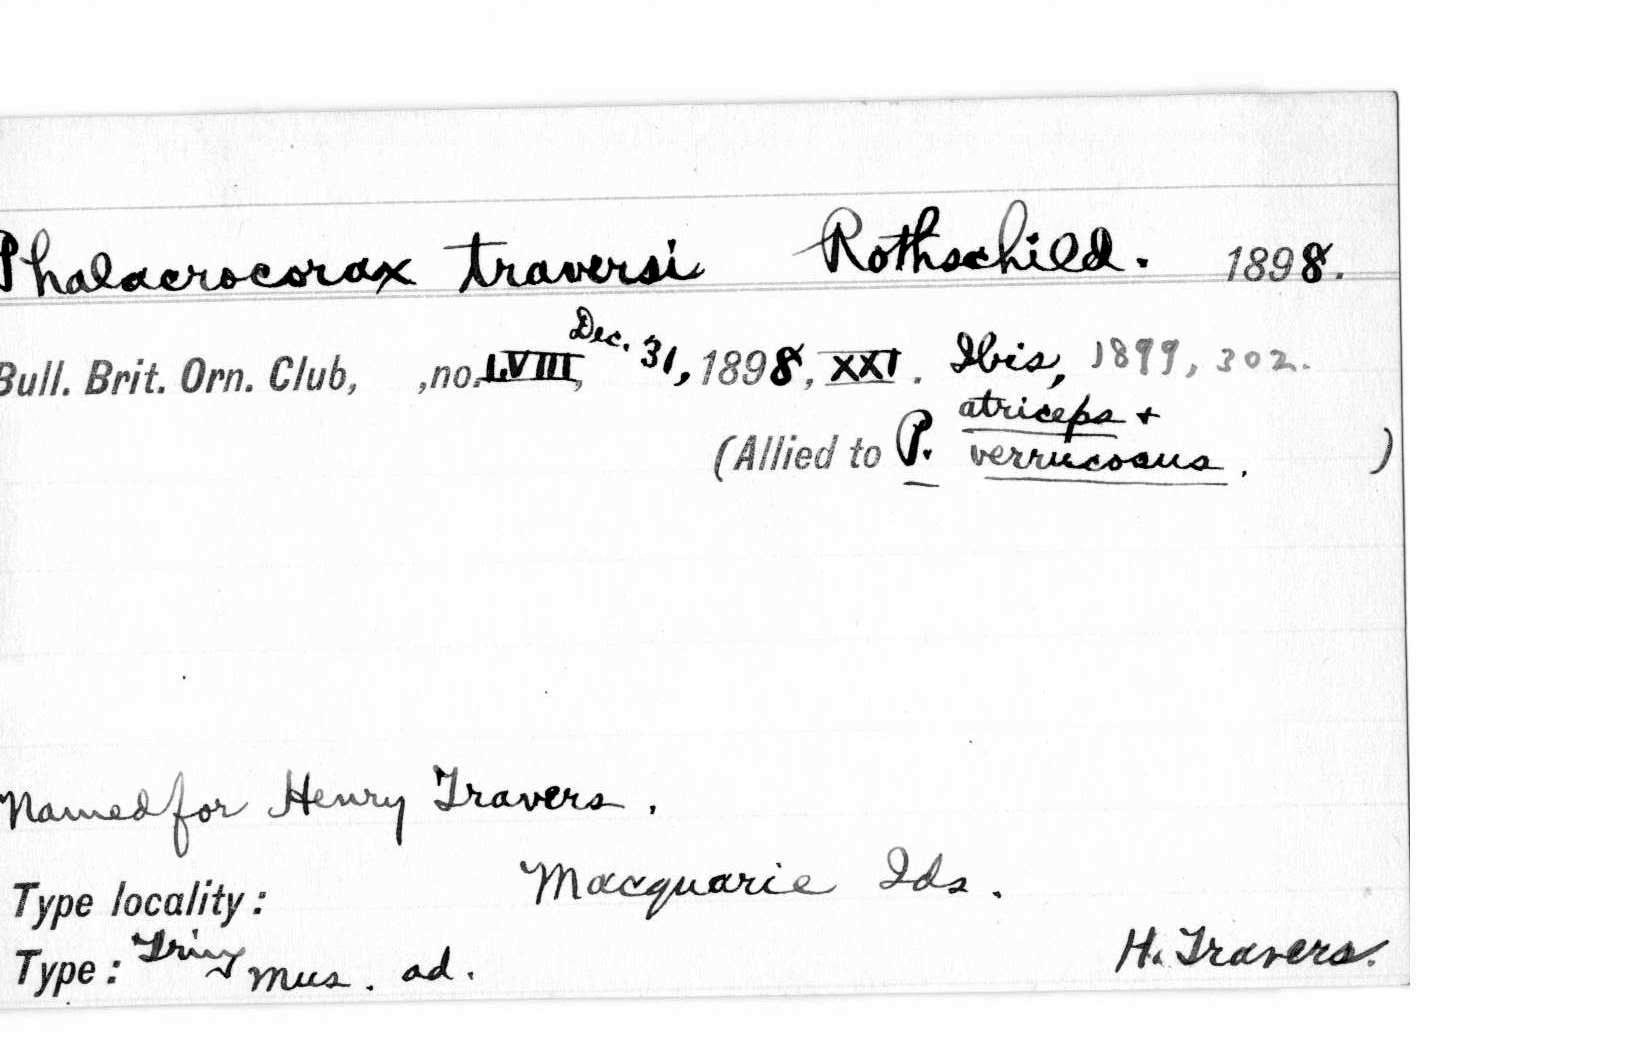 Phalacrocorax traversi Rothschild. 1898.
Bull. Brit. Orn. Club, ,no. LVIII, Dec. 31, 1898, XXI. Ibis, 1899, 302.
(Allied to P. atriceps +
verrucosus. )
Named for Henry Travers.
Type locality: Macquarie Ids.
Type: Tring Mus. ad. H. Travers.